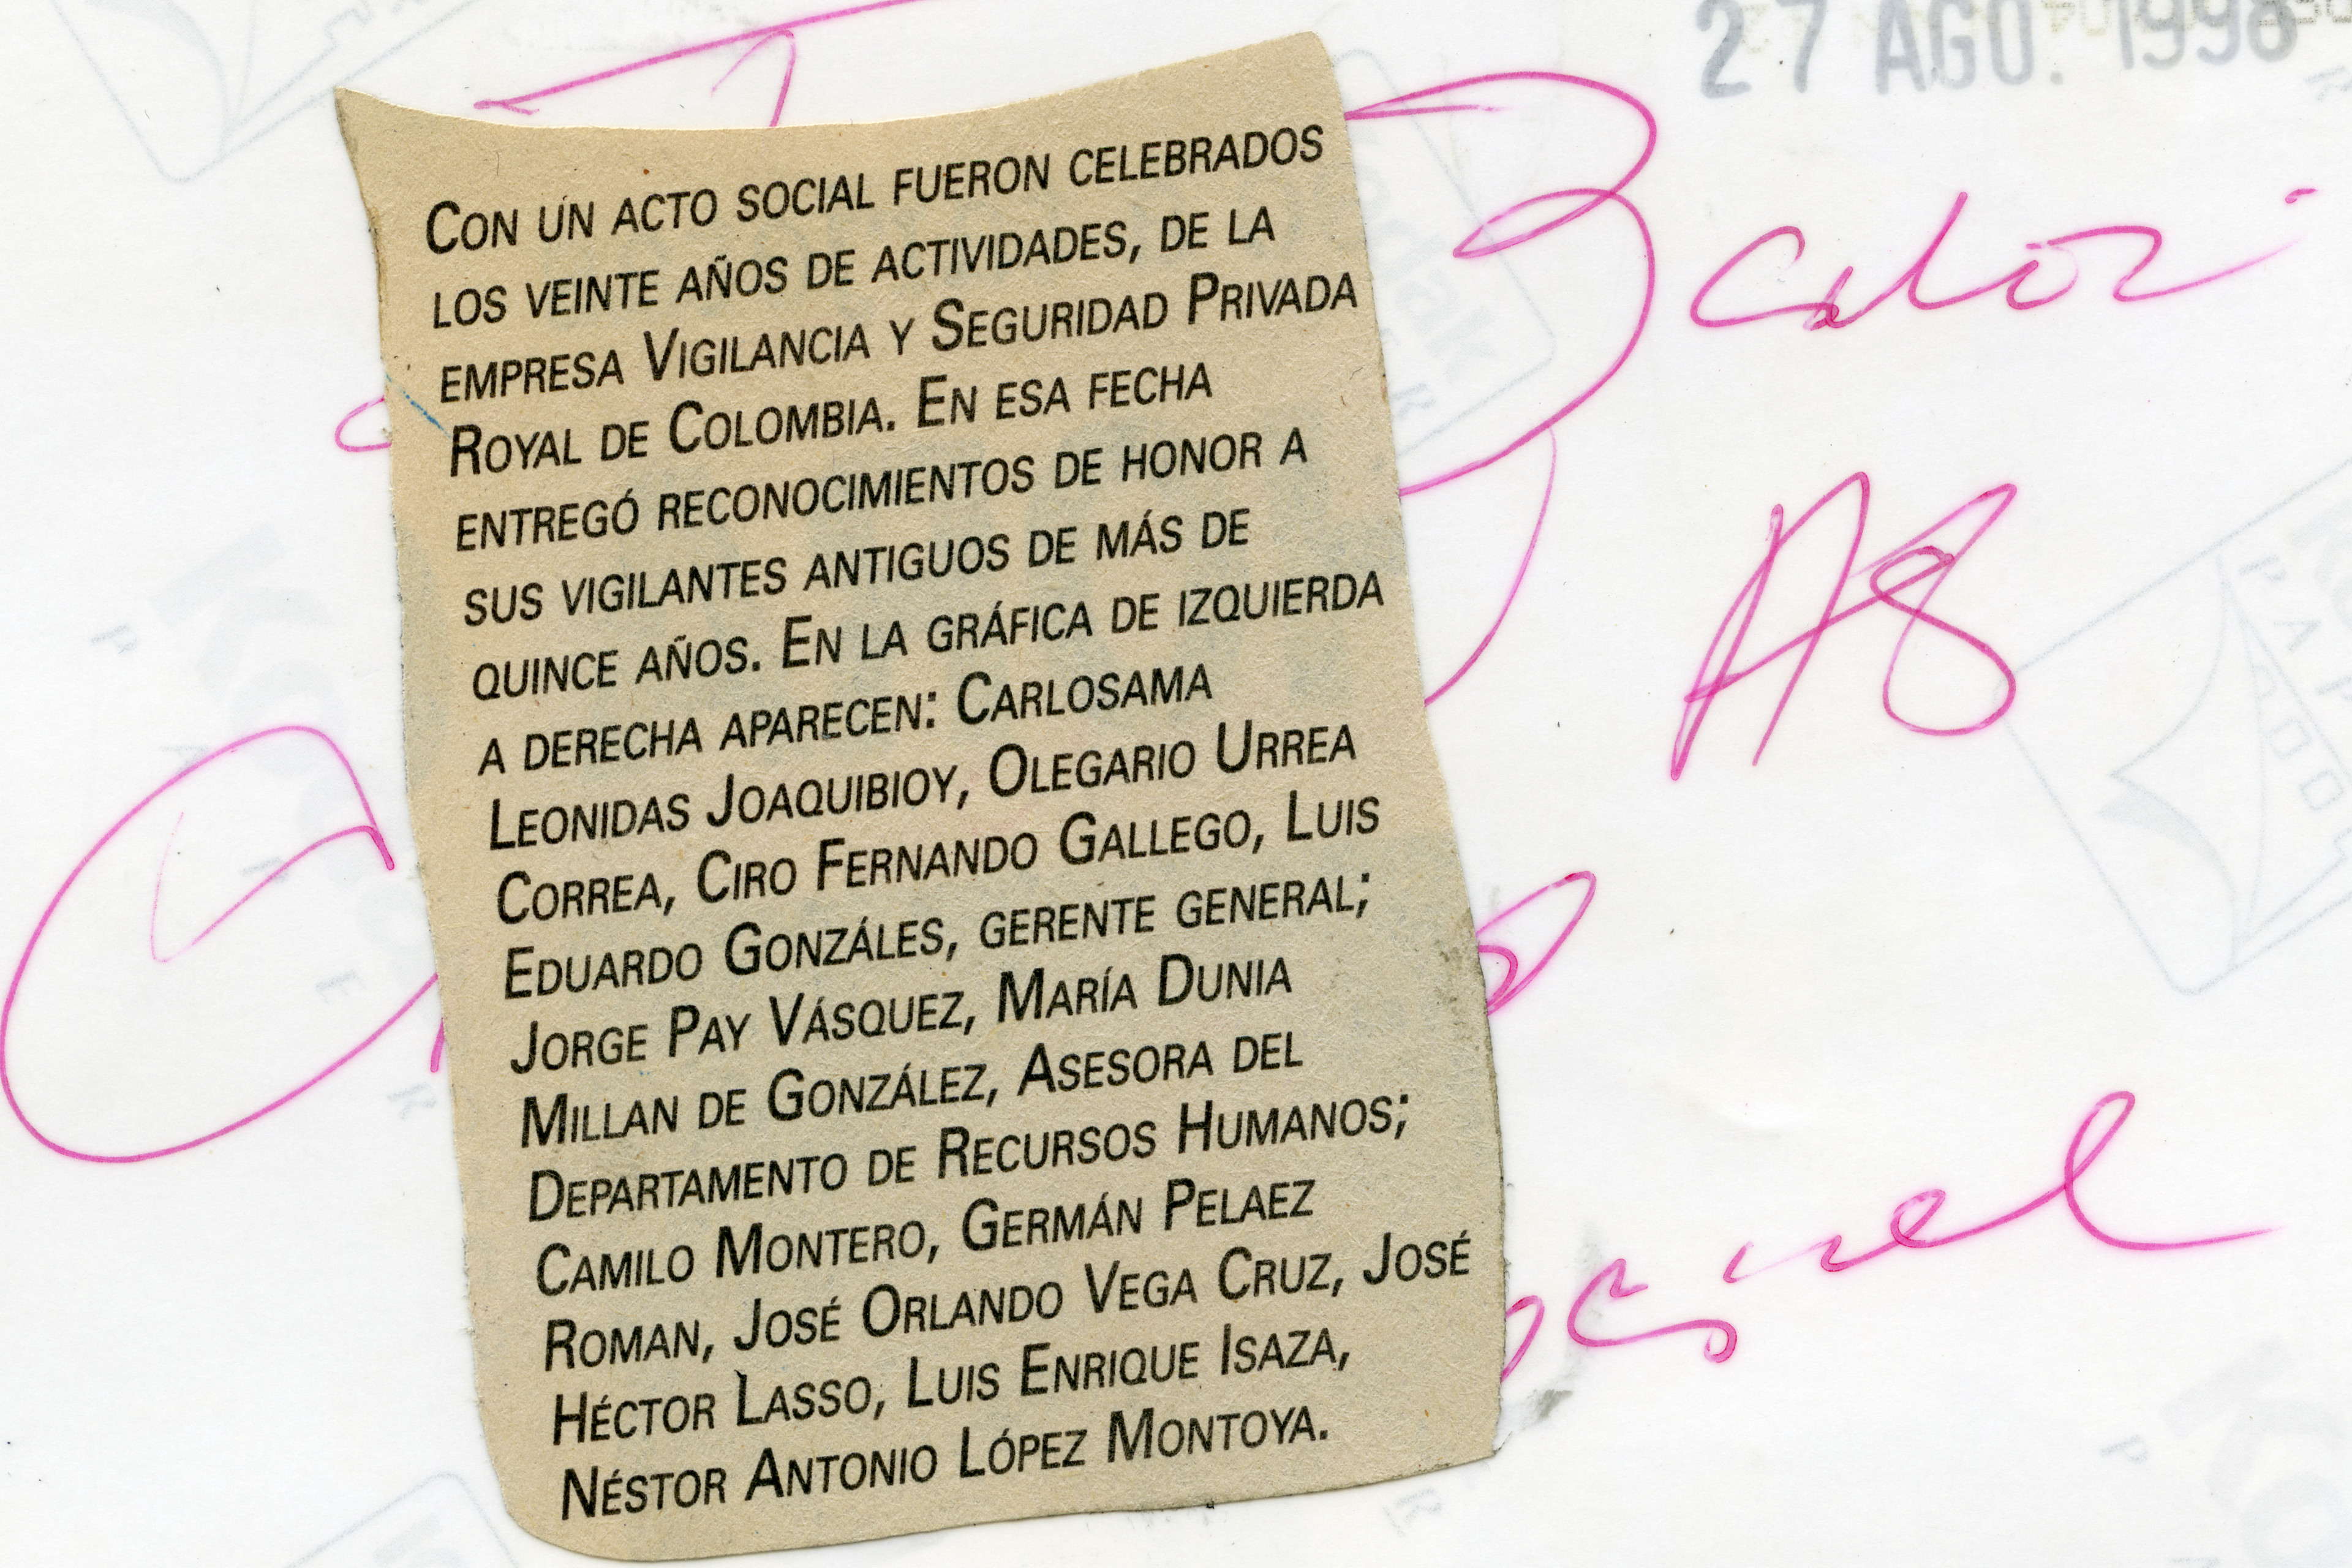 27 AGO. 1996
CON UN ACTO SOCIAL FUERON CELEBRADOS
LOS VEINTE AÑOS DE ACTIVIDADES, DE LA
EMPRESA VIGILANCIA Y SEGURIDAD PRIVADA
ROYAL DE COLOMBIA. EN ESA FECHA
ENTREGÓ RECONOCIMIENTOS DE HONOR A
SUS VIGILANTES ANTIGUOS DE MÁS DE
QUINCE AÑOS. EN LA GRÁFICA DE IZQUIERDA
A DERECHA APARECEN: CARLOSAMA
LEONIDAS JOAQUIBIOY, OLEGARIO URREA
CORREA, CIRO FERNANDO GALLEGO, LUIS
EDUARDO GONZÁLES, GERENTE GENERAL;
JORGE PAY VÁSQUEZ, MARÍA DUNIA
MILLAN DE GONZÁLEZ, ASESORA DEL
DEPARTAMENTO DE RECURSOS HUMANOS;
CAMILO MONTERO, GERMÁN PELAEZ
ROMAN, JOSÉ ORLANDO VEGA CRUZ, JOSÉ
HÉCTOR LASSO, LUIS ENRIQUE ISAZA,
NÉSTOR ANTONIO LÓPEZ MONTOYA.
A8